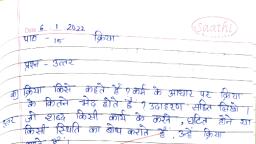 Saathi
Date 6.1.2022
पाठ - 15 क्रिया
प्रश्न - उत्तर
क) क्रिया किसे कहते हैं ? कर्म के आधार पर क्रिया
के कितने भेद होते हैं ? उदाहरण सहित लिखो ।
उत्तर जो शब्द किसी कार्य के करने, घटित होने या
किसी स्थिति का बोध कराते हैं, उन्हें क्रिया
कहते हैं।